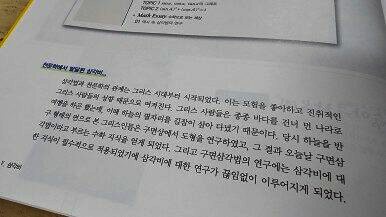 TOPIC 1
TOPIC 2
Math Essay
천문학에서 발달된 삼각비...
삼각법과 천문학의 관계는 그리스 시대부터 시작되었다. 이는 모험을 좋아하고 진취적인
그리스 사람들의 성향 때문으로 여겨진다. 그리스 사람들은 종종 바다를 건너 먼 나라로
여행을 하곤 했는데, 이때 하늘의 별자리를 길잡이 삼아 다녔기 때문이다. 당시 하늘을 반
구 형태의 면으로 본 그리스인들은 구면상에서 도형을 연구하였고, 그 결과 오늘날 구면삼
각법이라고 부르는 수학 지식을 얻게 되었다. 그리고 구면삼각법의 연구에는 삼각비에 대
한 지식이 필수적으로 적용되었기에 삼각비에 대한 연구가 끊임없이 이루어지게 되었다.
V. 삼각비